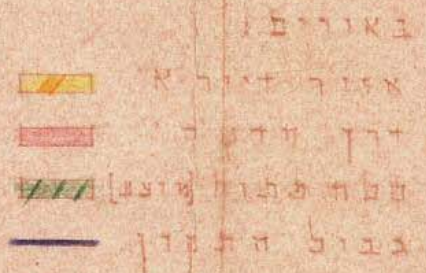 באורים:
אזור דיור א
דרך חדשה
שטח פתוח [מוצע]
גבול התכנון